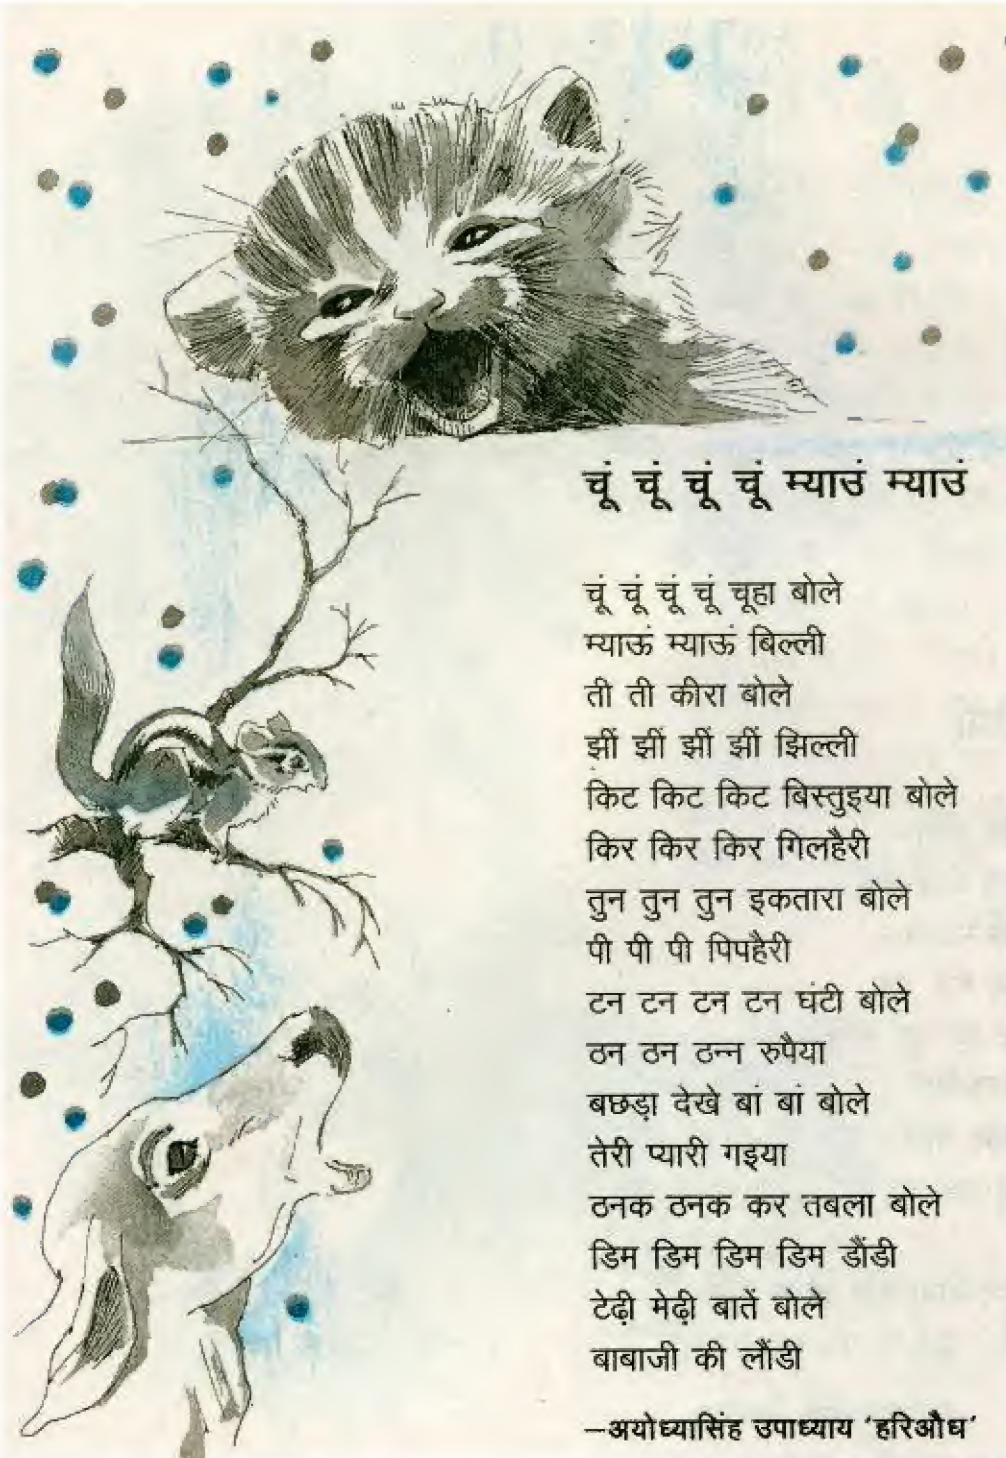 चूं चूं चूं चूं म्याउं म्याउं
चूं चूं चूं चूं चूहा बोले
म्याऊं म्याऊं बिल्ली
ती ती कीरा बोले
झीं झीं झीं झीं झिल्ली
किट किट किट बिस्तुइया बोले
किर किर किर गिलहैरी
तुन तुन तुन इकतारा बोले
पी पी पी पिपहैरी
टन टन टन टन घंटी बोले
ठन ठन ठन्न रुपैया
बछड़ा देखे बां बां बोले
तेरी प्यारी गइया
ठनक ठनक कर तबला बोले
डिम डिम डिम डिम डौंडी
टेढ़ी मेढ़ी बातें बोले
बाबाजी की लौंडी
–अयोध्यासिंह उपाध्याय ‘हरिऔध’